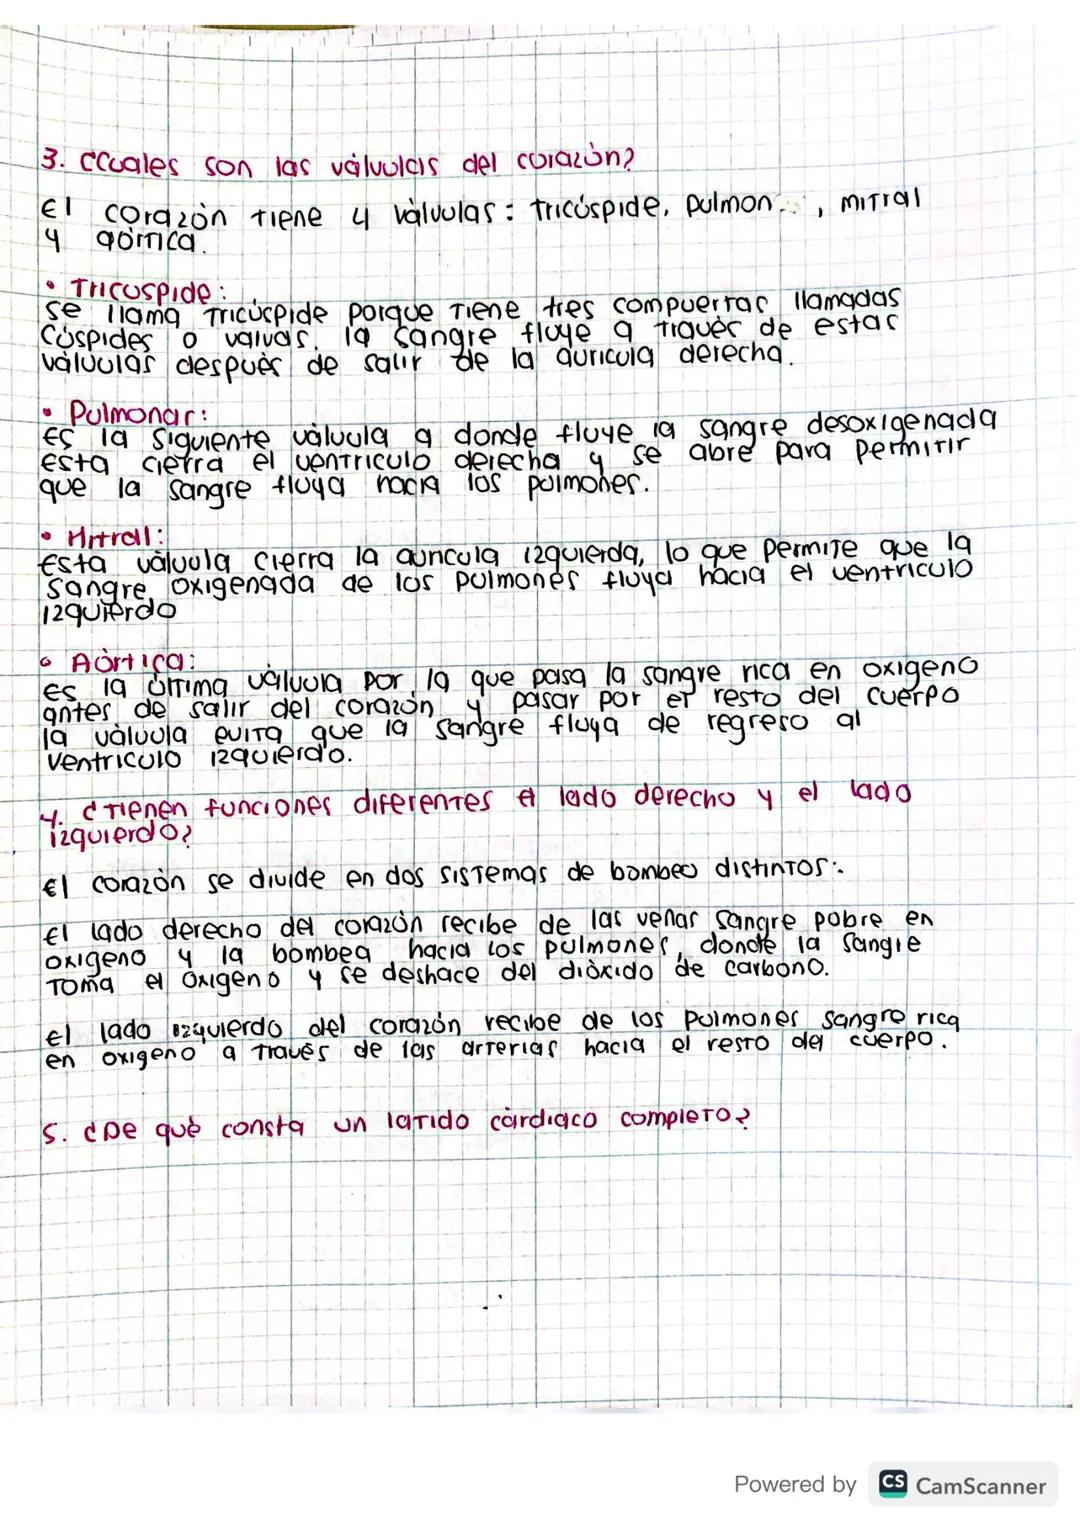 3. ¿Cuales son las válvulas del corazón?
El corazón tiene 4 válvulas: tricúspide, pulmon , mitral
y aórtica.
• Tricuspide:
se llama tricúspide porque tiene tres compuertas llamadas
Cúspides o valvas. la sangre fluye a través de estas
válvulas después de salir de la auricula derecha.
• Pulmonar:
Es la siguiente válvula a donde fluye la sangre desoxigenada
Esta cierra el ventriculo derecha y se abre para permitir
que la sangre fluya hacia los pulmones.
• Mitral:
Esta válvula cierra la auricula izquierda, lo que permite que la
sangre oxigenada de los pulmones fluya hacia el ventriculo
izquierdo
• Aórtica:
es la última válvula por la que pasa la sangre rica en oxigeno
antes de salir del corazón y pasar por el resto del cuerpo
la válvula evita que la sangre fluya de regreso al
ventriculo izquierdo.
4. ¿Tienen funciones diferentes el lado derecho y el lado
izquierdo?
El corazón se divide en dos sistemas de bombeo distintos:.
El lado derecho del corazón recibe de las venas sangre pobre en
oxigeno y la bombea hacia los pulmones, donde la sangre
toma el oxigeno y se deshace del dióxido de carbono.
El lado izquierdo del corazón recibe de los pulmones sangre rica
en oxigeno a través de las arterias hacia el resto del cuerpo.
5. ¿De qué consta un latido cárdiaco completo?
Powered by CS CamScanner